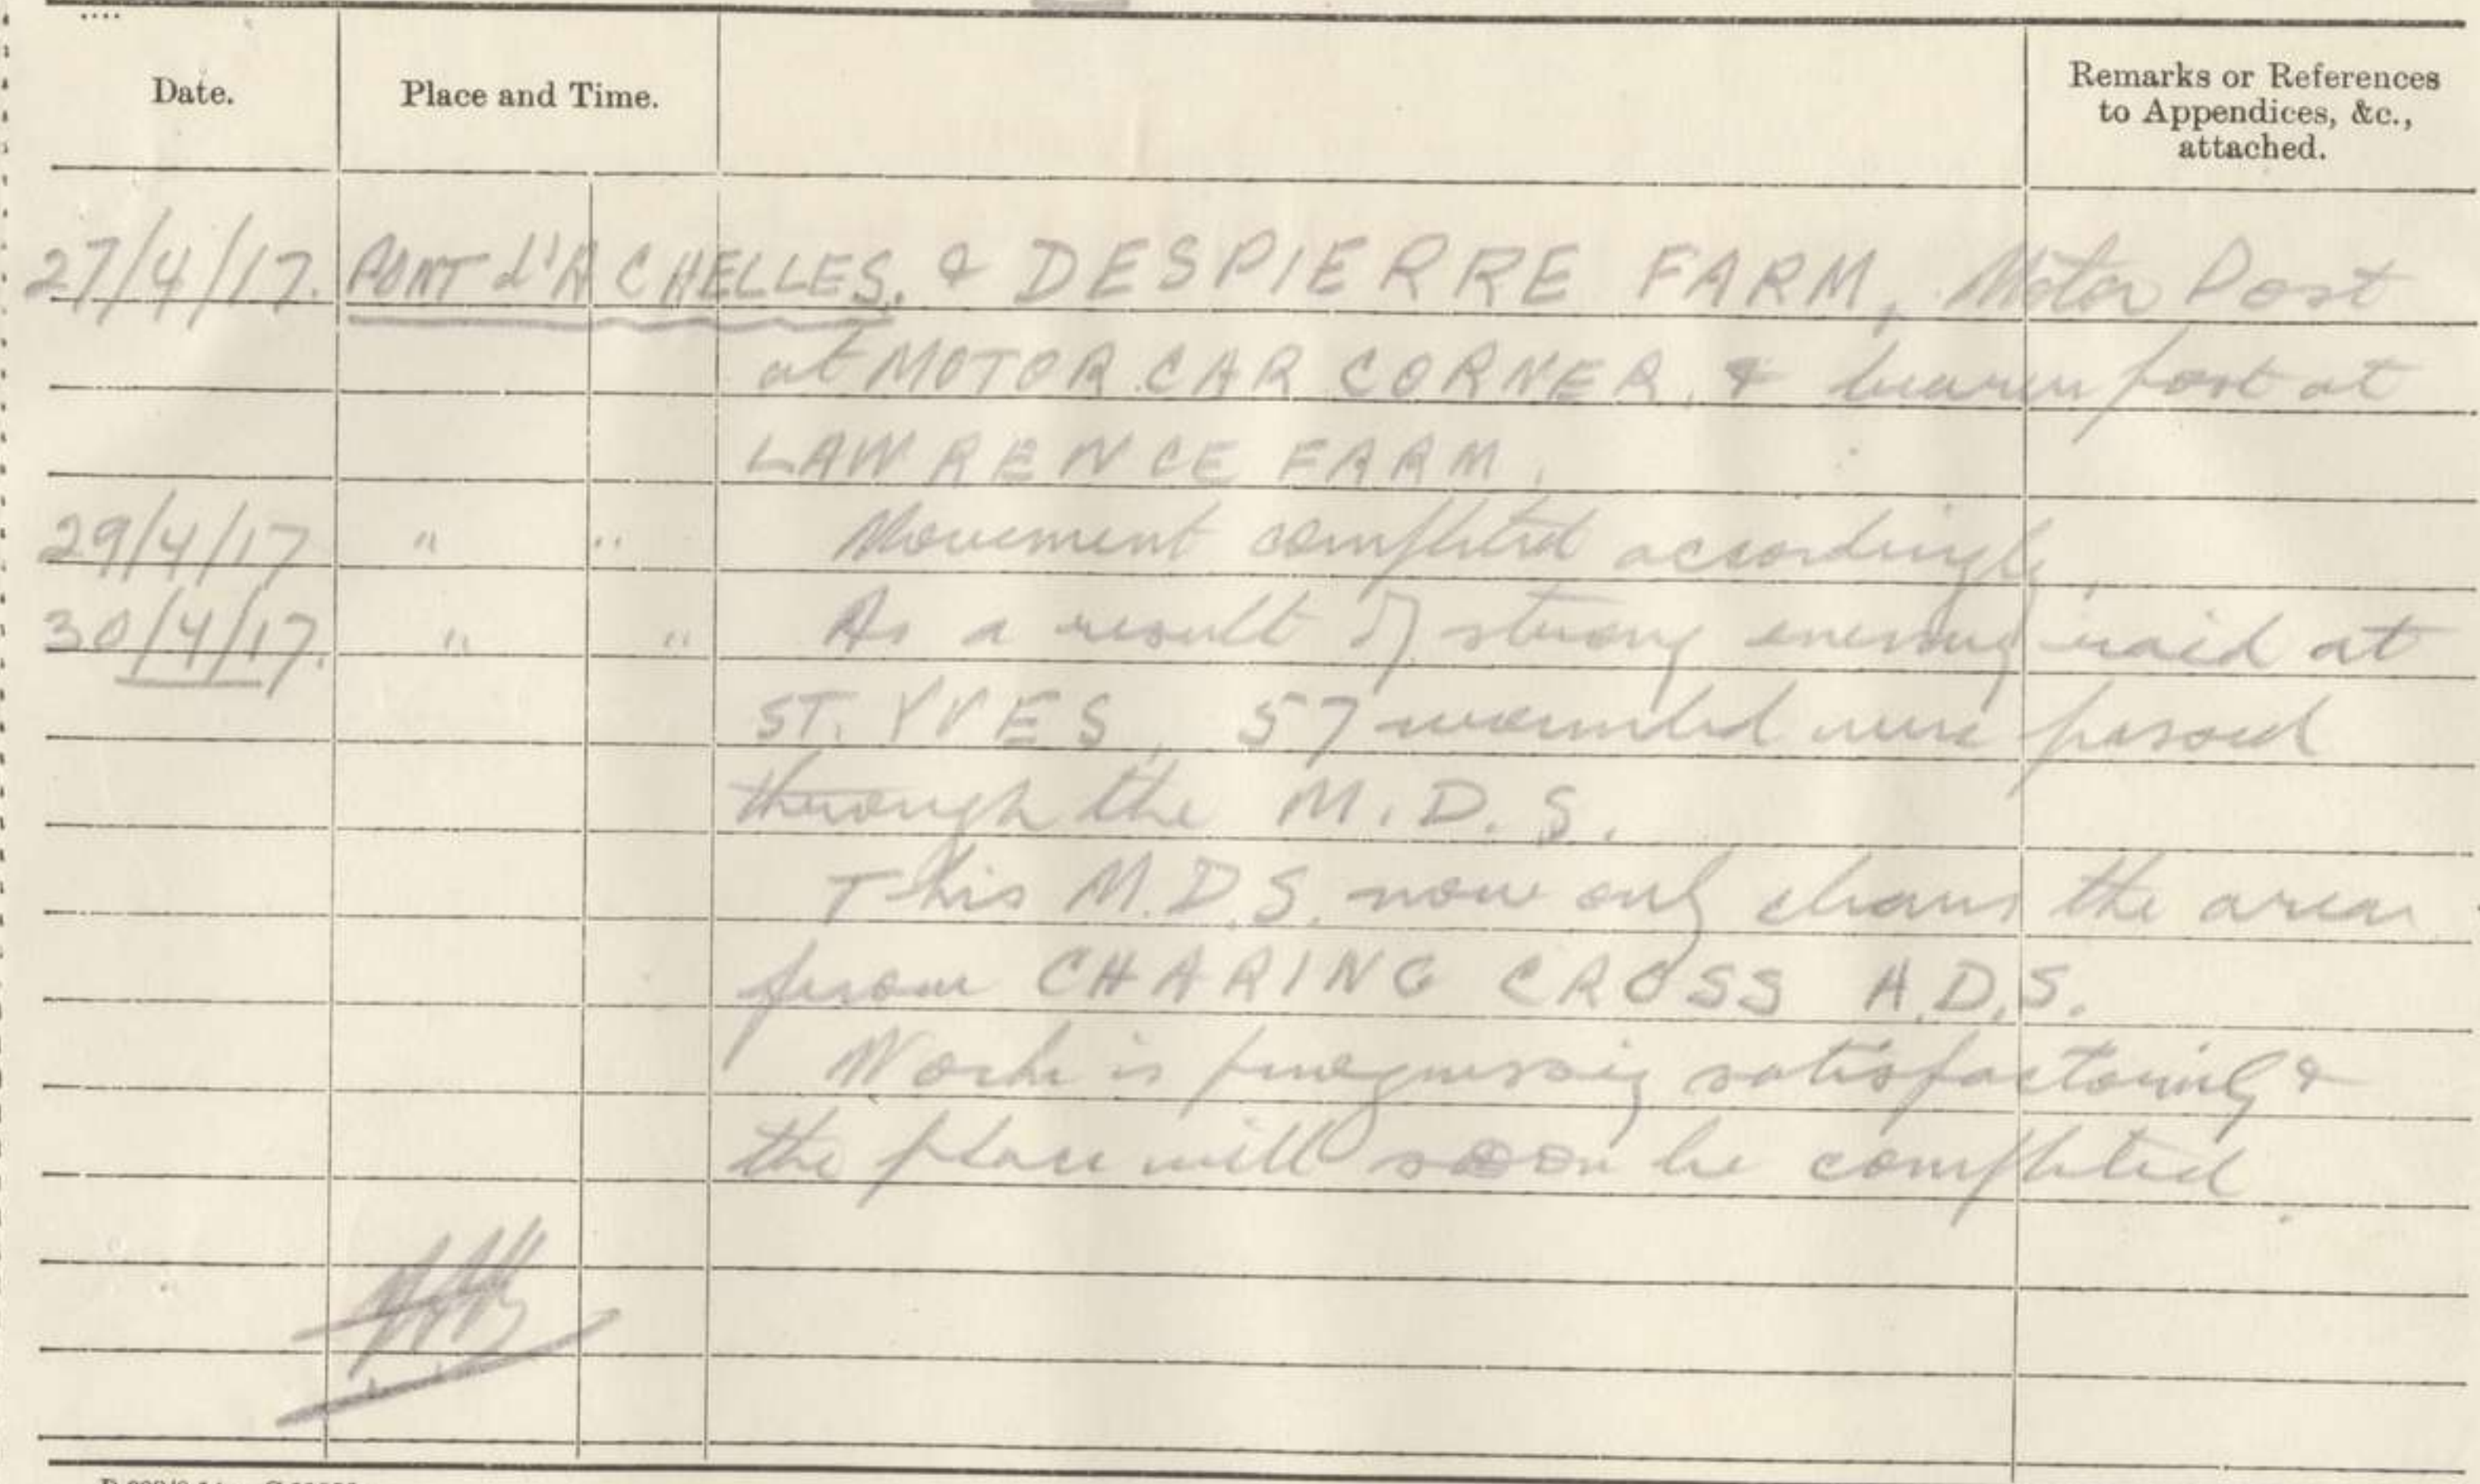 Date.
Place and Time.
Remarks or References
to Appendices, &c.,
attached.
27/4/17. PONT d'ACHELLES. & DESPIERRE FARM, Motor Post
at MOTOR CAR CORNER, & bearer post at
LAWRENCE FARM.
29/4/17 " " Movement completed accordingly.
30/4/17. " " As a result of strong enemy raid at
ST. YVES, 57 wounded were passed
through the M.D.S.
This M.D.S. now only clears the area
from CHARING CROSS A.D.S.
Work is progressing satisfactorily &
the place will soon be completed.